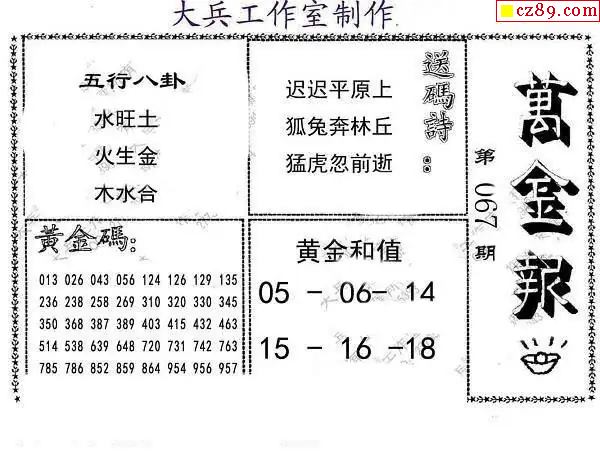 大兵工作室制作
cz89.com
五行八卦
水旺土
火生金
木水合
送碼詩:
迟迟平原上
狐兔奔林丘
猛虎忽前逝
萬金報
第067期
黃金碼:
013 026 043 056 124 126 129 135
236 238 258 269 310 320 330 345
350 368 387 389 403 415 432 463
514 538 639 648 720 731 742 763
785 786 852 859 864 954 956 957
黄金和值
05 - 06- 14
15 - 16 -18